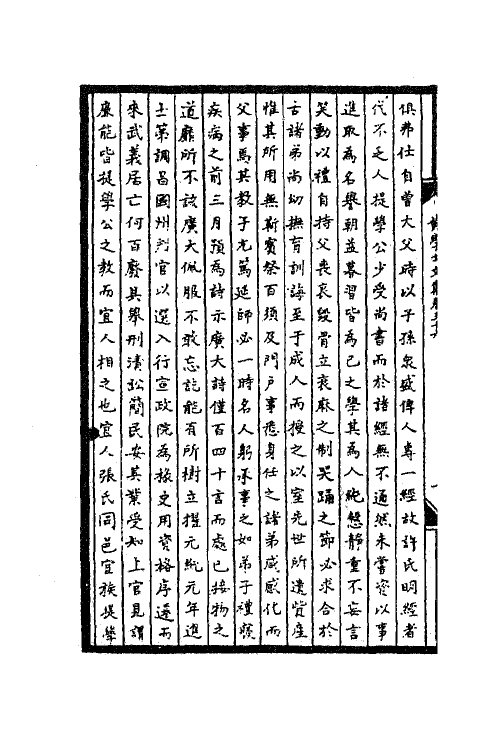 俱弗仕自曾大父時以子孫衆盛俾人專一經故許氏明經者
代不乏人提學公少受尚書而於諸經無不通然未嘗資以事
進取為名譽朝益暮習皆為己之學其為人純慤靜重不妄言
笑動以禮自持父喪哀毀骨立衰麻之制哭踊之節必求合於
古諸弟尚幼撫育訓誨至于成人而授之以室先世所遺貲產
惟其所用無靳賓祭百須及門戶事悉身任之諸弟咸感化而
父事焉其教子尤篤延師必一時名人躬承事之如弟子禮寢
疾病之前三月預為詩示廣大詩僅百四十言而處己接物之
道靡所不該廣大佩服不敢忘訖能有所樹立擢元統元年進
士第調昌國州判官以選入行宣政院為掾史用資格序遷而
來武義居亡何百廢具舉刑清訟簡民安其業受知上官見謂
廉能皆提學公之教而宜人相之也宜人張氏同邑宦族提學